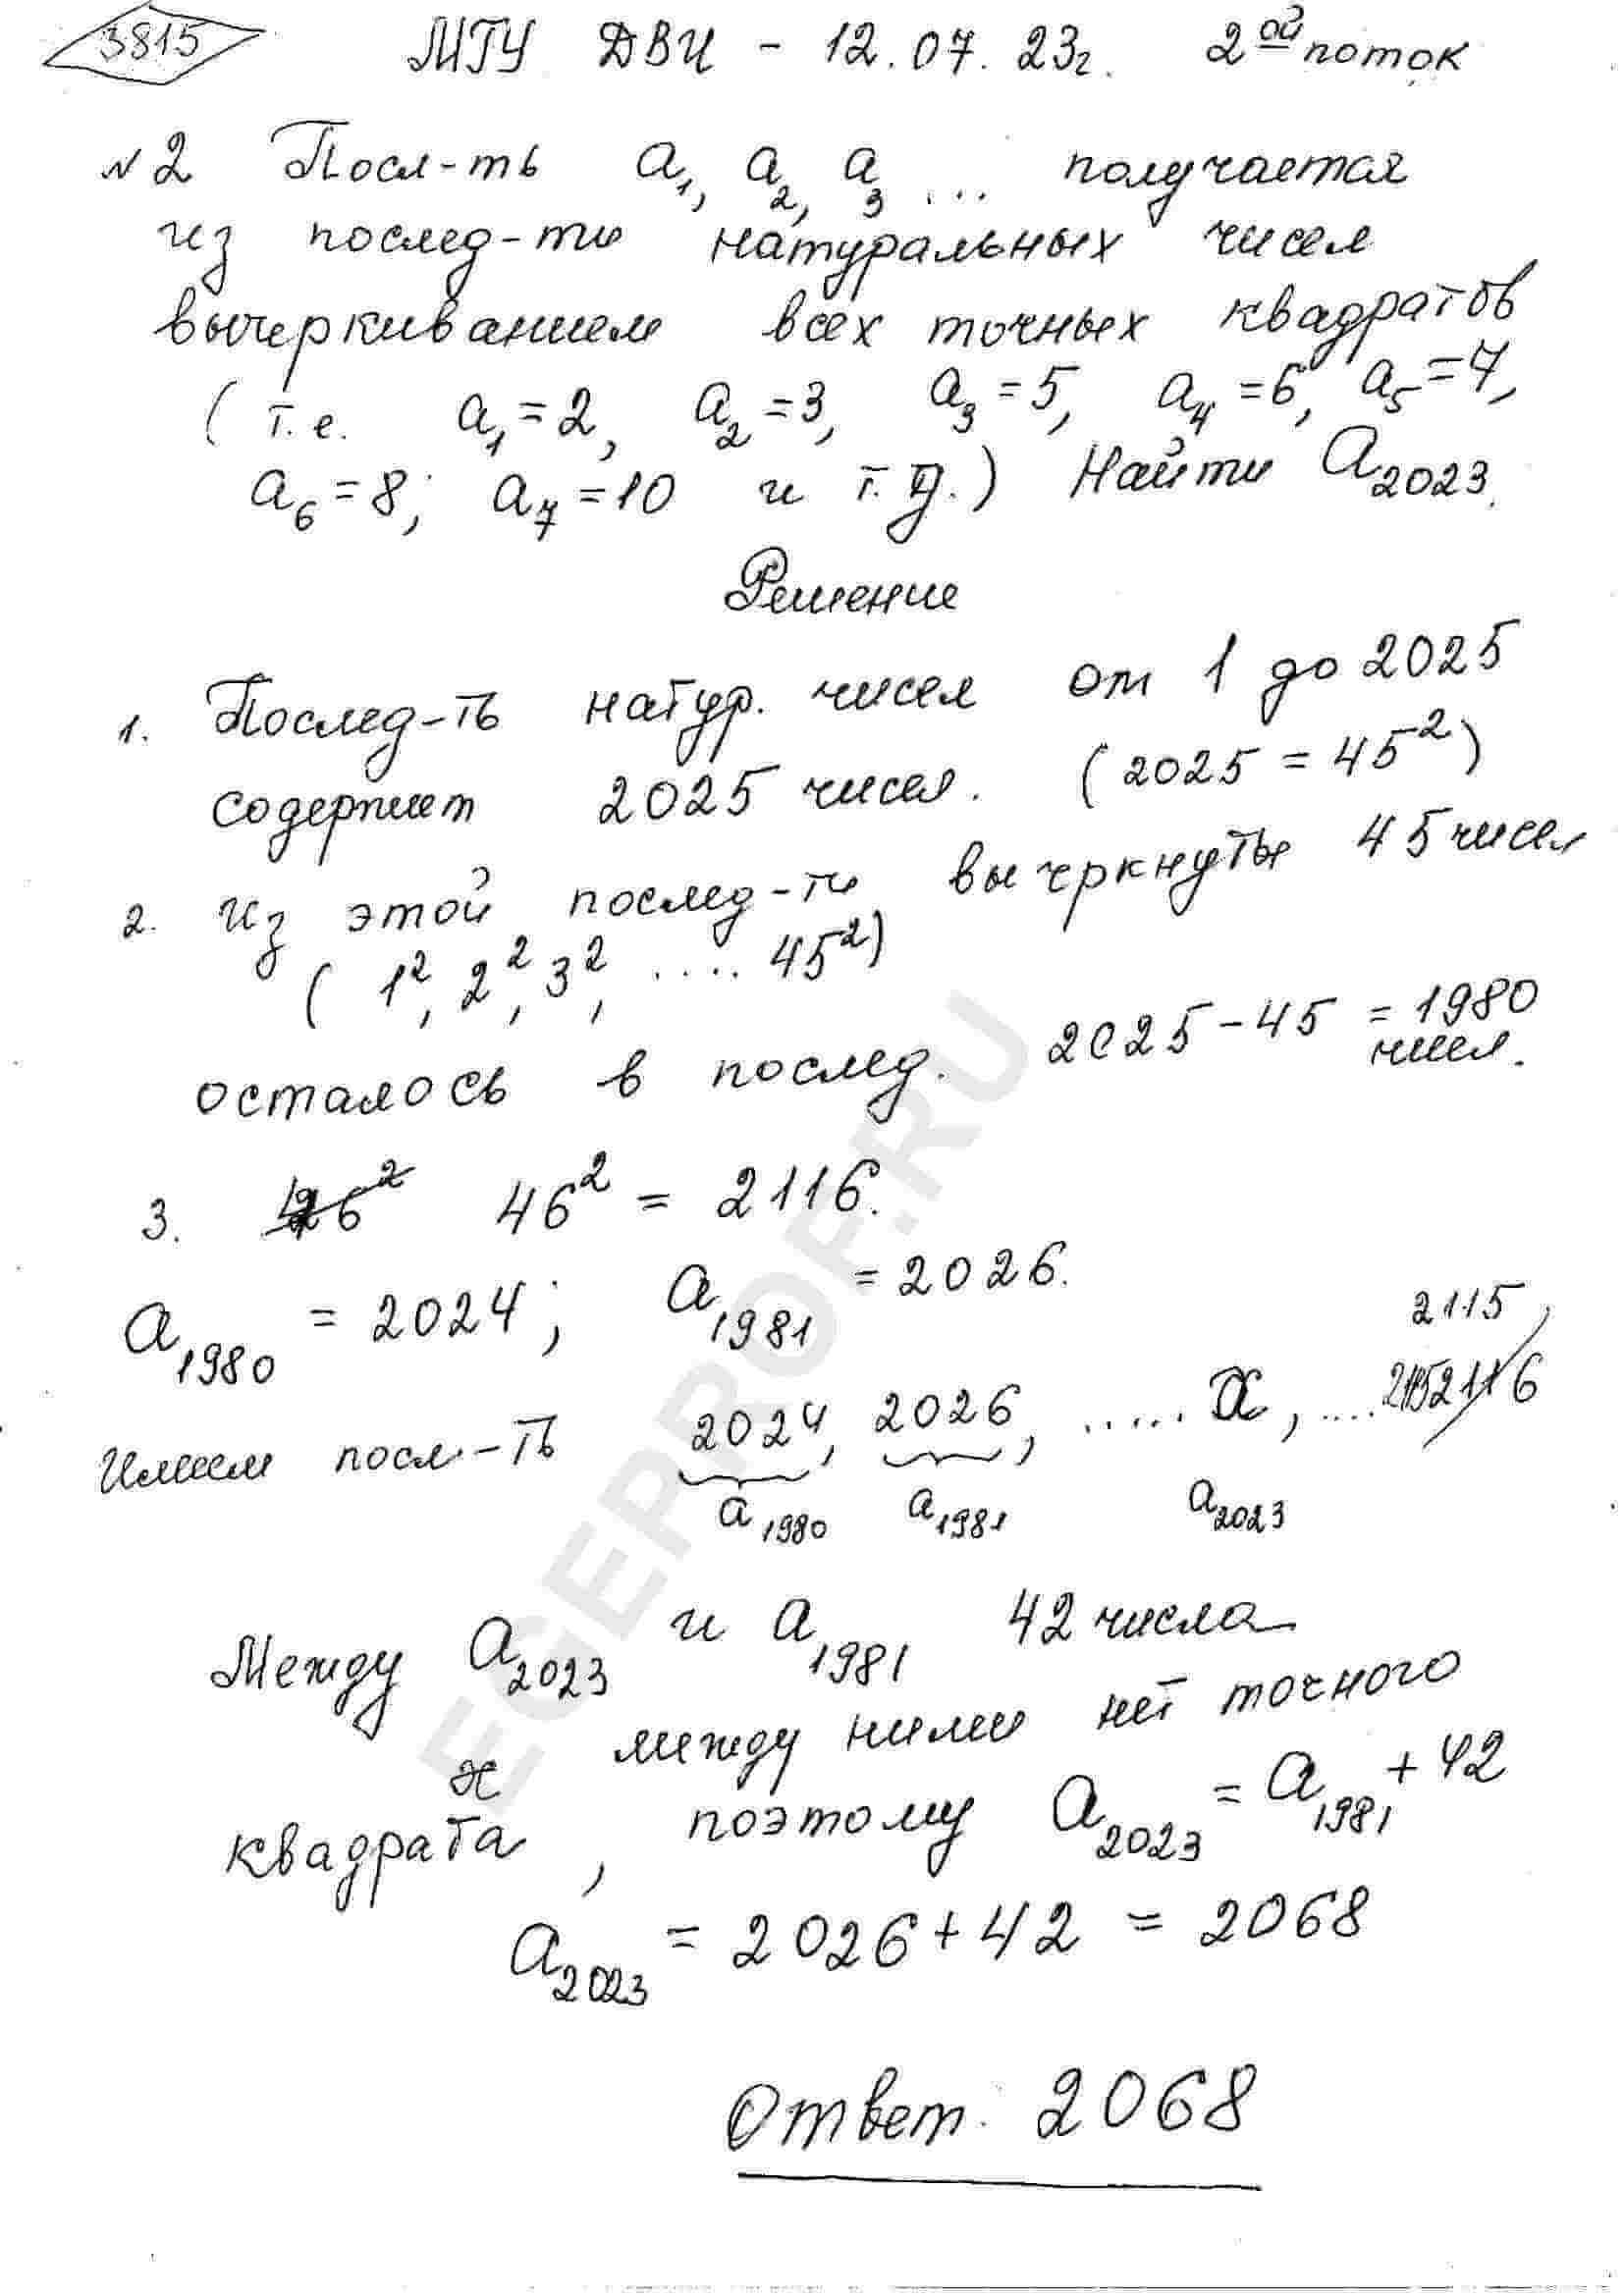 3815 МГУ ДВИ - 12.07.23г. 2ой поток
№2 Посл-ть a₁, a₂, a₃ ... получается
из послед-ти натуральных чисел
вычеркиванием всех точных квадратов
(т.е. a₁=2, a₂=3, a₃=5, a₄=6, a₅=7,
a₆=8; a₇=10 и т.д.) Найти a₂₀₂₃.
Решение
1. Послед-ть натур. чисел от 1 до 2025
содержит 2025 чисел. (2025 = 45²)
2. Из этой послед-ти вычеркнуты 45 чисел
(1², 2², 3², .... 45²)
осталось в послед. 2025-45 = 1980
чисел.
3. 46² = 2116.
a₁₉₈₀ = 2024; a₁₉₈₁ = 2026.
2115,
Имеем посл-ть 2024, 2026, ..... x, .... 2116
a₁₉₈₀ a₁₉₈₁ a₂₀₂₃
Между a₂₀₂₃ и a₁₉₈₁ 42 числа
и между ними нет точного
квадрата, поэтому a₂₀₂₃ = a₁₉₈₁ + 42
a₂₀₂₃ = 2026 + 42 = 2068
Ответ: 2068
EGEPROF.RU